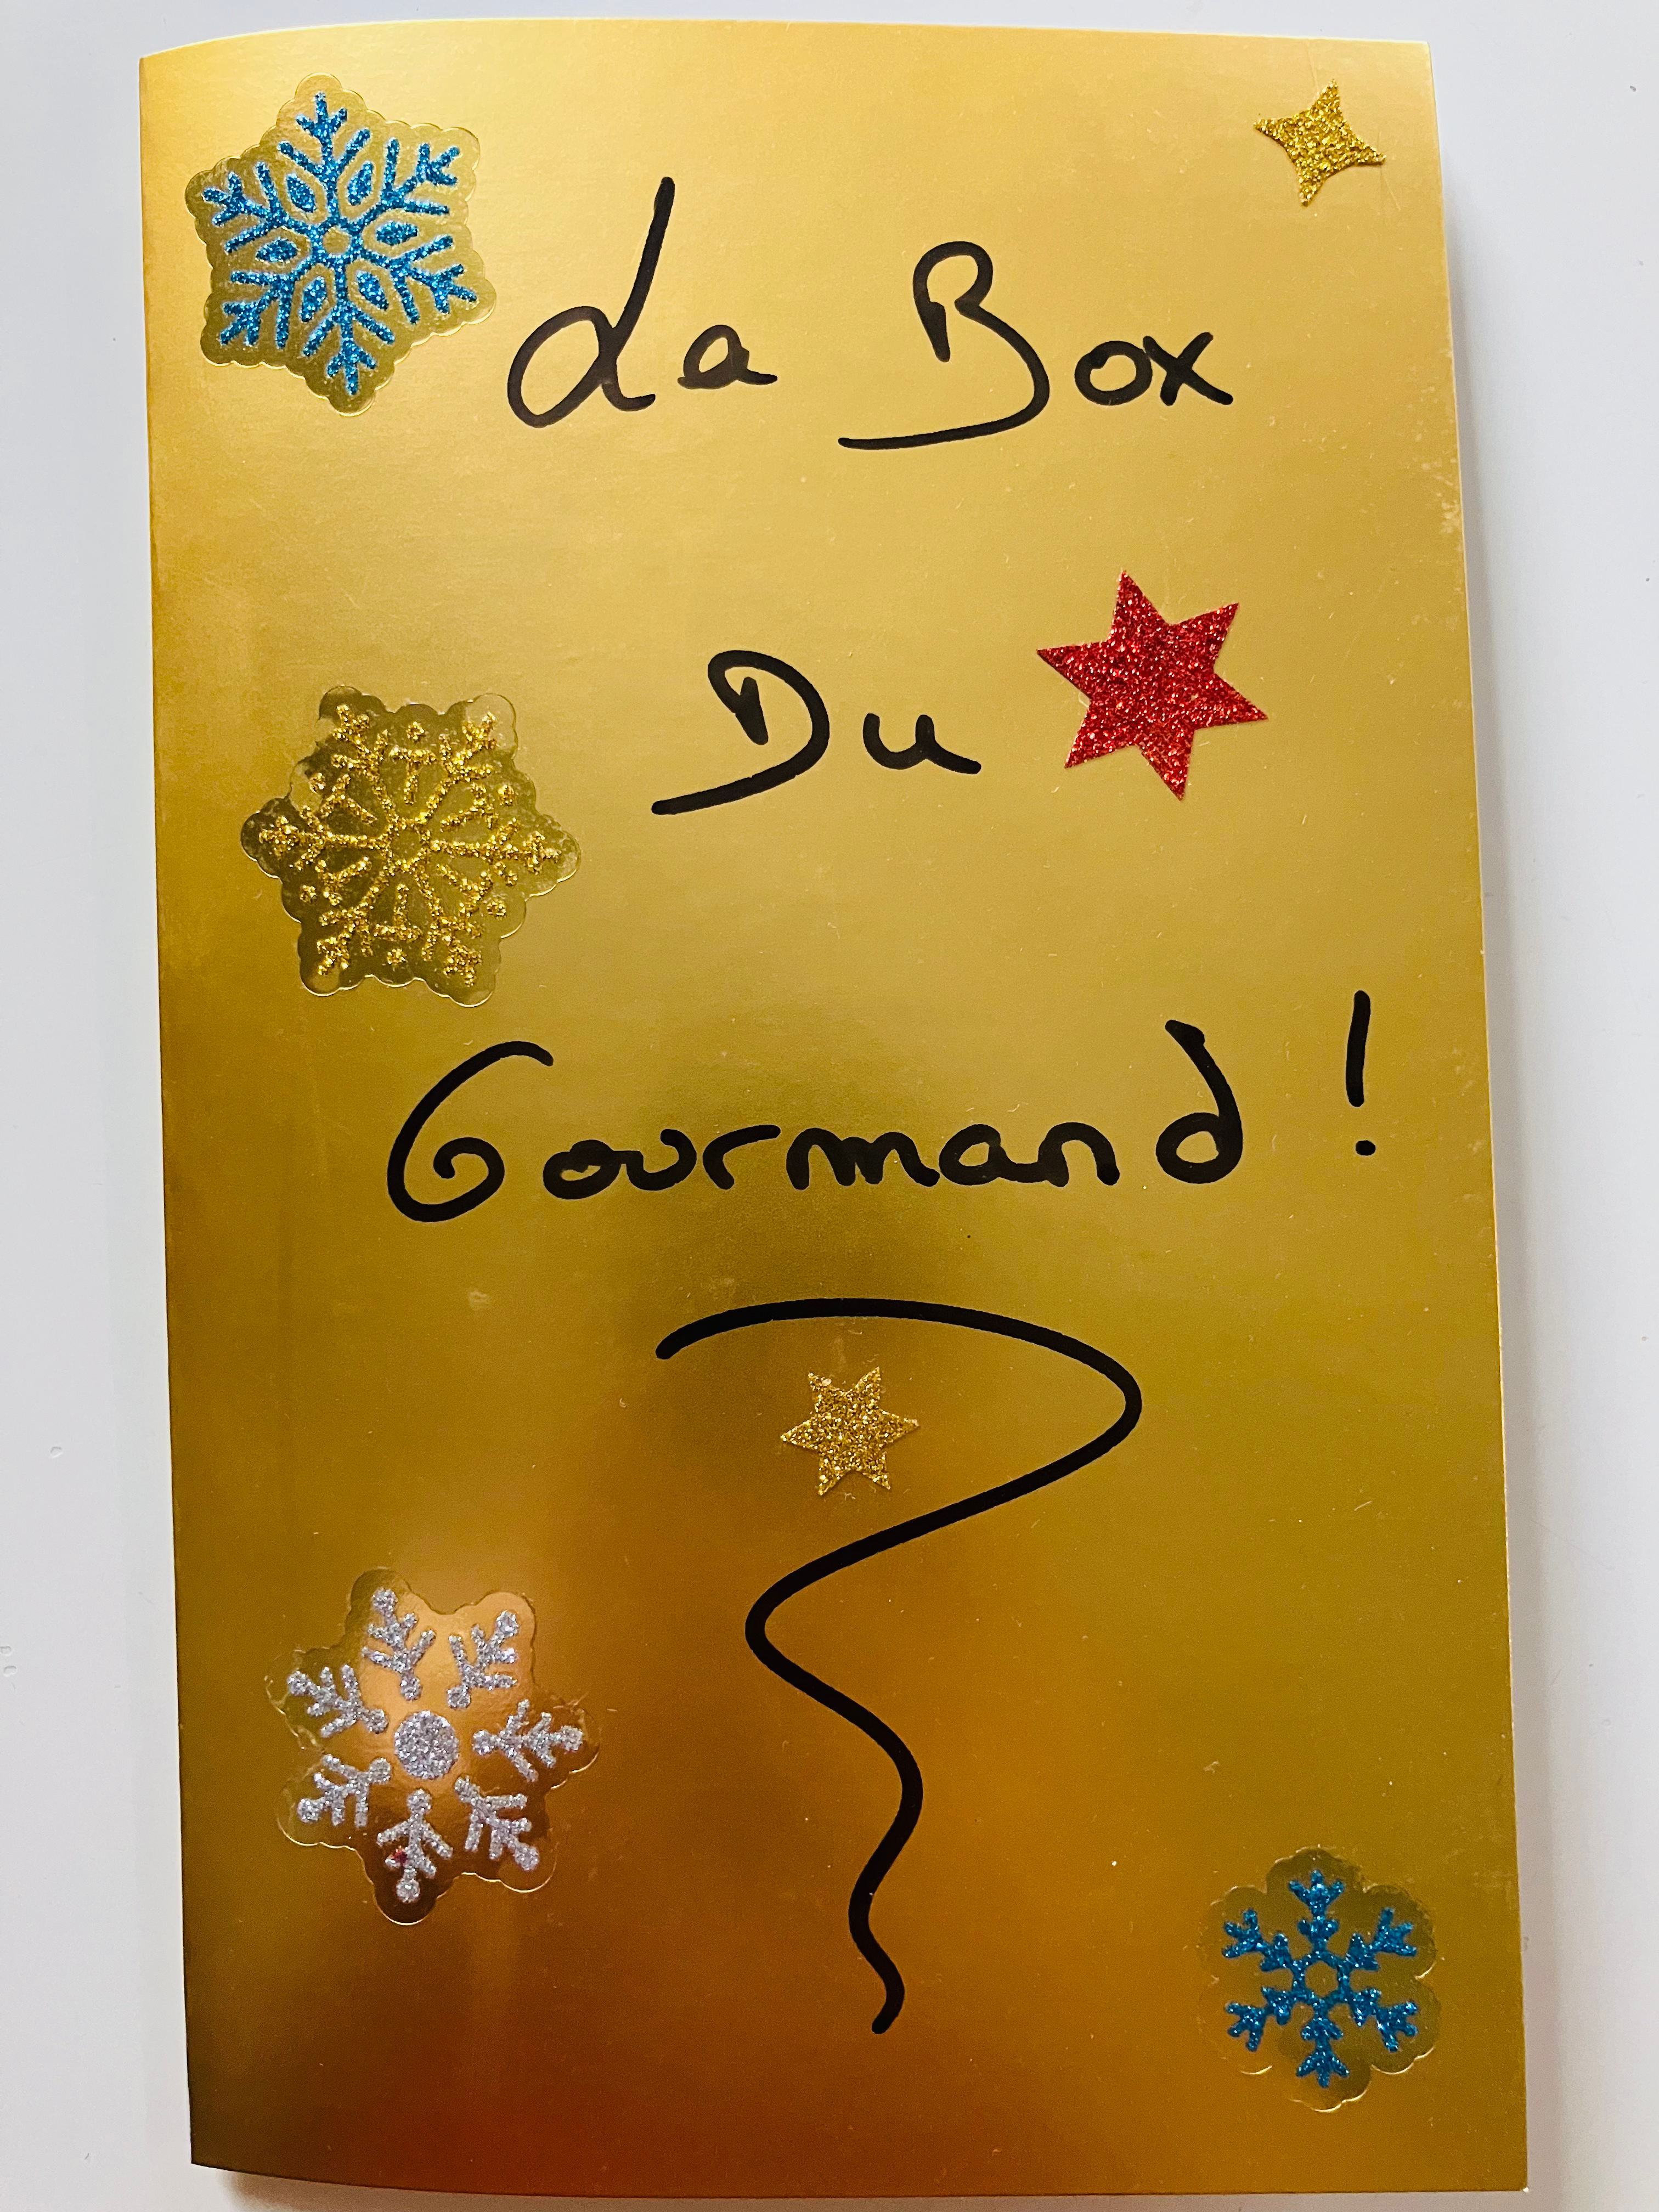 La Box
Du
Gourmand !